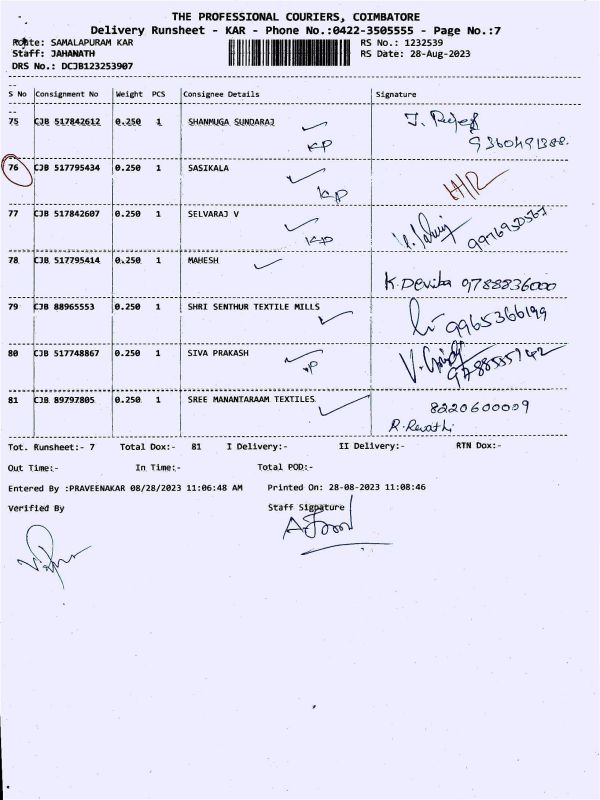 THE PROFESSIONAL COURIERS, COIMBATORE
Delivery Runsheet - KAR - Phone No.:0422-3505555 - Page No.:7
Route: SAMALAPURAM KAR RS No.: 1232539
Staff: JAHANATH RS Date: 28-Aug-2023
DRS No.: DCJB123253907
S No Consignment No Weight PCS Consignee Details Signature
75 CJB 517842612 0.250 1 SHANMUGA SUNDARAJ
KP
76 CJB 517795434 0.250 1 SASIKALA
KP
77 CJB 517842607 0.250 1 SELVARAJ V
KP
78 CJB 517795414 0.250 1 MAHESH
K. Devika 9788836000
79 CJB 88965553 0.250 1 SHRI SENTHUR TEXTILE MILLS
9965366199
80 CJB 517748867 0.250 1 SIVA PRAKASH
81 CJB 89797805 0.250 1 SREE MANANTARAAM TEXTILES
8220600009
R. Revathi
Tot. Runsheet:- 7 Total Dox:- 81 I Delivery:- II Delivery:- RTN Dox:-
Out Time:- In Time:- Total POD:-
Entered By :PRAVEENAKAR 08/28/2023 11:06:48 AM Printed On: 28-08-2023 11:08:46
Verified By Staff Signature